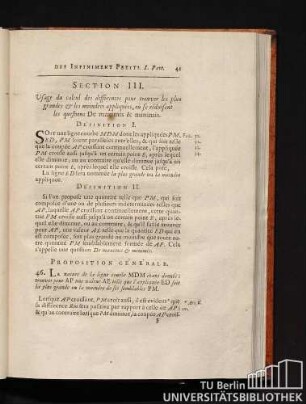 DES INFINIMENT PETITS. I. Part. 41
SECTION III.
Usage du calcul des différences pour trouver les plus
grandes & les moindres appliquées, où se réduisent
les questions De maximis & minimis.
DÉFINITION I.
SOIT une ligne courbe MDM dont les appliquées PM,
ED, PM soient paralleles entr'elles; & qui soit telle
que la coupée AP croissant continuellement, l'appliquée
PM croisse aussi jusqu'à un certain point E, après lequel
elle diminuë; ou au contraire qu'elle diminuë jusqu'à un
certain point E, après lequel elle croisse. Cela posé,
La ligne ED sera nommée la plus grande ou la moindre
appliquée.
DÉFINITION II.
SI l'on propose une quantité telle que PM, qui soit
composée d'une ou de plusieurs
AP croissant continuellement, cette
PM croisse aussi jusqu'à un certain point E, après
elle diminuë, ou au contraire; & qu'il faille trouver
pour AP, une valeur AE telle que la quantité ED qui en
est composée, soit plus grande ou moindre que toute autre
quantité PM semblablement formée de AP. Cela
s'appelle une question De maximis & minimis.
PROPOSITION GÉNÉRALE.
46. LA nature de la ligne courbe MDM étant donnée;
trouver pour AP une valeur AE telle que l'appliquée ED soit
la plus grande ou la moindre de ses semblables PM.
Lorsque AP croissant, PM croît aussi, il est évident que
sa différence Rm sera positive par rapport à celle de AP;
& qu'au contraire lorsque PM diminuë, la coupée AP crois-
F
TU Berlin
UNIVERSITÄTSBIBLIOTHEK